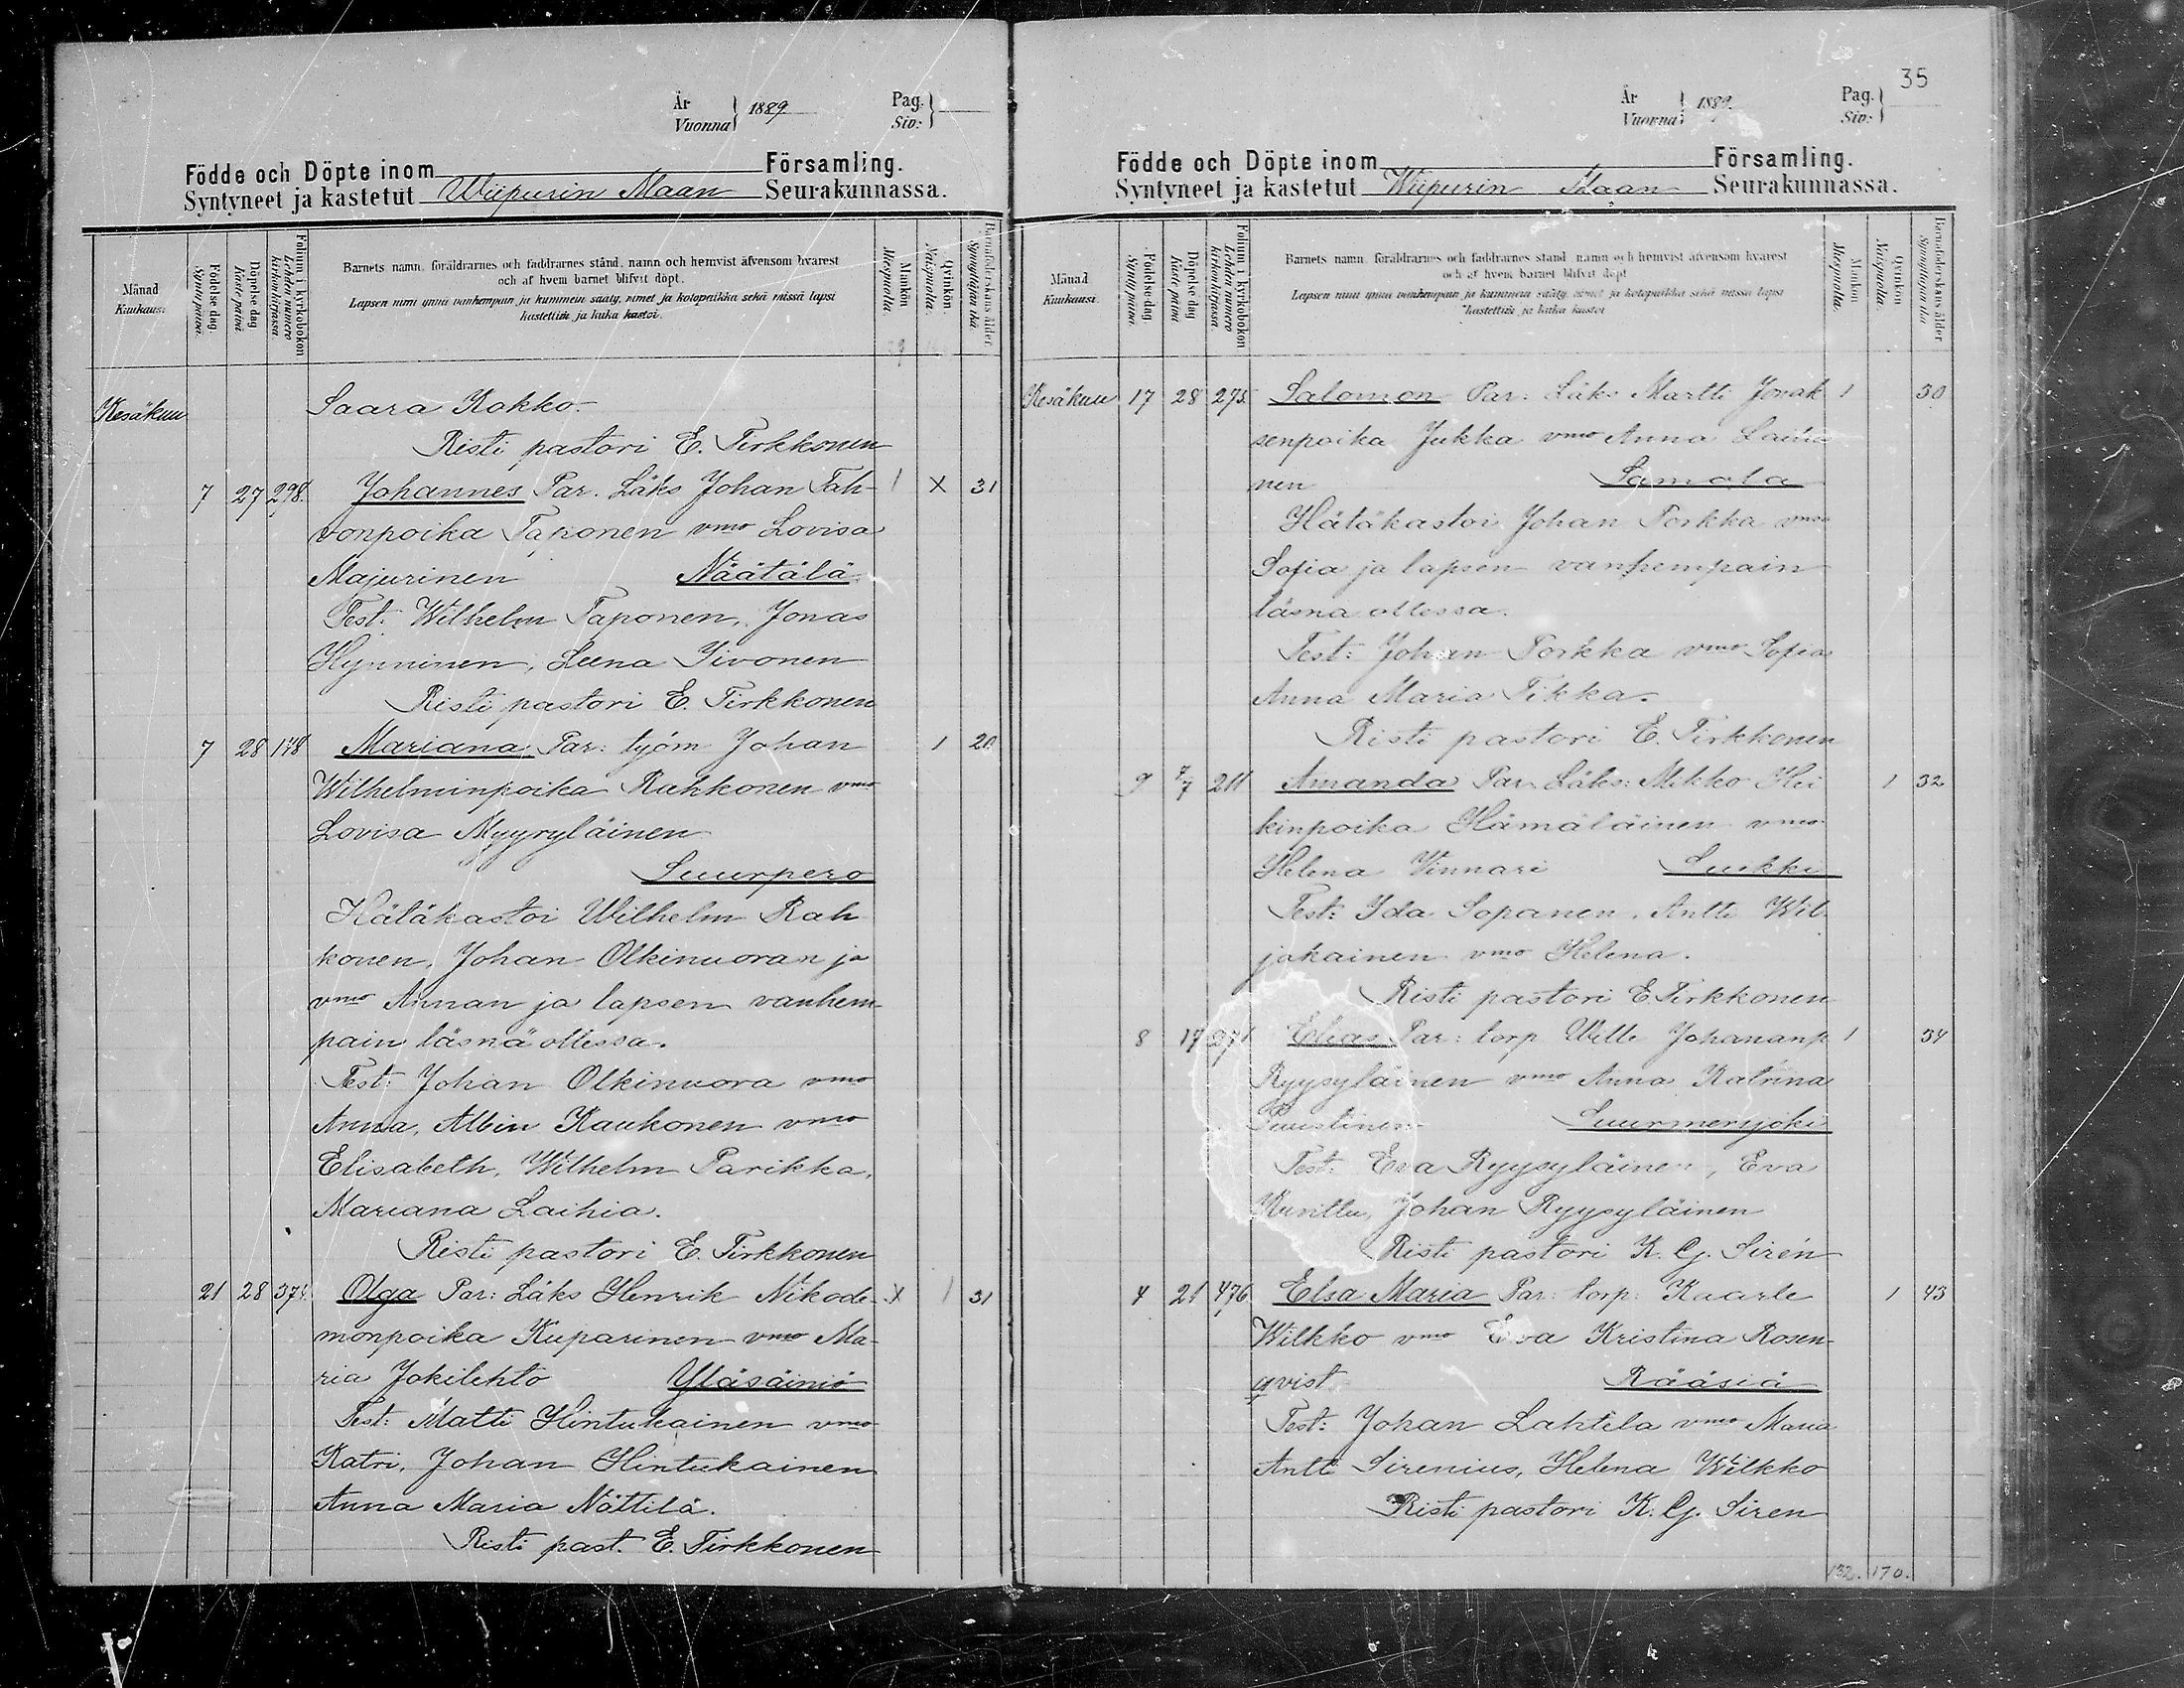 År
Vuonna } 1889.
Pag.
Siv: }
Födde och Döpte inom Församling.
Syntyneet ja kastetut Wiipurin Maan Seurakunnassa.
Månad
Kuukausi.
Födelse dag.
Syntypäivä.
Döpelse dag
Kaste päivä
Folium i kyrkoboken
Lehden numero
kirkonkirjassa
Barnets namn, föräldrarnes och faddrarnes stånd, namn och hemvist äfvensom hvarest
och af hvem barnet blifvit döpt.
Lapsen nimi ynnä vanhempain ja kummein sääty, nimet ja kotopaikka sekä missä lapsi
kastettiin ja kuka kastoi.
Mankön
Miespuolia.
Qvinkön.
Naispuolia.
Barnaföderskans ålder
Synnyttäjän ikä.
Kesäkuu Saara Kokko.
Risti pastori E. Tirkkonen
7 27 298. Johannes Par. Läks Johan Tah- 1 X 31
vonpoika Taponen vmo Lovisa
Majurinen Näätälä
Test: Wilhelm Taponen, Jonas
Hynninen, Leena Iivonen
Risti pastori E. Tirkkonen
7 28 148 Mariana, Par: työm Johan 1 20
Wilhelminpoika Rahkonen vmo
Lovisa Myyryläinen
Suurpero
Hätäkastoi Wilhelm Rah
konen, Johan Olkinuoran ja
vmo Annan ja lapsen vanhem-
pain läsnä ollessa.
Test: Johan Olkinuora vmo
Anna, Albin Kaukonen vmo
Elisabeth, Wilhelm Parikka,
Mariana Laihia.
Risti pastori E. Tirkkonen
21 28 374. Olga Par: Läks Henrik Nikode- X 1 31
monpoika Kuparinen vmo Ma-
ria Jokilehto Yläsäiniö
Test: Matti Hintukainen vmo
Katri, Johan Hintukainen
Anna Maria Nättilä.
Risti past. E. Tirkkonen
35
År
Vuonna } 1889.
Pag.
Siv: }
Födde och Döpte inom Församling.
Syntyneet ja kastetut Wiipurin Maan Seurakunnassa.
Månad
Kuukausi.
Födelse dag.
Synty päivä.
Döpelse dag
Kaste päivä
Folium i kyrkoboken
Lehden numero
kirkonkirjassa.
Barnets namn, föräldrarnes och faddrarnes stånd, namn och hemvist äfvensom hvarest
och af hvem barnet blifvit döpt
Lapsen nimi ynnä vanhempain ja kummein sääty, nimet ja kotopaikka sekä missä lapsi
kastettiin ja kuka kastoi
Mankön
Miespuolia.
Qvinkön
Naispuolia.
Barnaföderskans ålder
Synnyttäjän ikä
Kesäkuu 17 28 275. Salomon Par: Läks Martti Isak 1 30
senpoika Jukka vmo Anna Laiha
nen Samola
Hätäkastoi Johan Porkka vmo
Sofia ja lapsen vanhempain
läsna ollessa.
Test: Johan Porkka vmo Sofia
Anna Maria Tikka.
Risti pastori E. Tirkkonen
9 7/7 211 Amanda Par. Läks: Mikko Hei 1 32
kinpoika Hämäläinen vmo
Helena Vinnari Suikki
Test: Ida Sopanen, Antti Wil-
jakainen vmo Helena.
Risti pastori E. Tirkkonen
8 17 Elias Par: torp Wille Johananp 1 34
Ryysyläinen vmo Anna Katrina
Puustinen Suurmerijoki
Test: Eva Ryysyläinen, Eva
Kurittu, Johan Ryysyläinen
Risti pastori K. G. Sirén
4 21 476 Elsa Maria Par: torp: Kaarle 1 43
Wilkko vmo Eva Kristina Rosen-
qvist Rääsiä
Test: Johan Lahtela vmo Maria
Antti Sirenius, Helena Wilkko
Risti pastori K. G. Siren
132. 170.